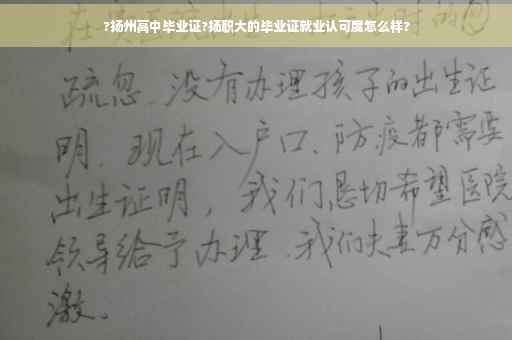 ?扬州高中毕业证?扬职大的毕业证就业认可度怎么样?
疏忽、没有办理孩子的出生证
明、现在入户口、防疫都需要
出生证明，我们恳切希望医院
领导给予办理、我们夫妻万分感
激。